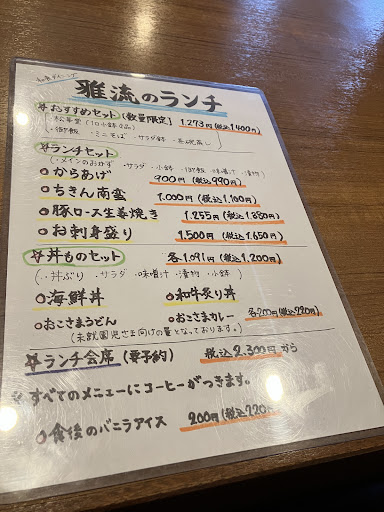 雅流のランチ
☆おすすめセット(数量限定) 1,273円(税込1,400円)
・松花堂(10小鉢4品)
・御飯 ・ミニそば ・サラダ ・茶碗蒸し
☆ランチセット
(・メインのおかず ・サラダ ・小鉢 ・御飯 ・味噌汁 ・漬物)
○からあげ 900円(税込990円)
○ちきん南蛮 1,000円(税込1,100円)
○豚ロース生姜焼き 1,255円(税込1,380円)
○お刺身盛り 1,500円(税込1,650円)
☆丼ものセット 各1,091円(税込1,200円)
(・丼ぶり ・サラダ ・味噌汁 ・漬物 ・小鉢)
○海鮮丼 ○和牛炙り丼
○おこさまうどん ○おこさまカレー 各200円(税込220円)
(未就園児さま向けの量となっております。)
☆ランチ会席(要予約) 税込2,300円から
※すべてのメニューにコーヒーがつきます。
○食後のバニラアイス 200円(税込220円)